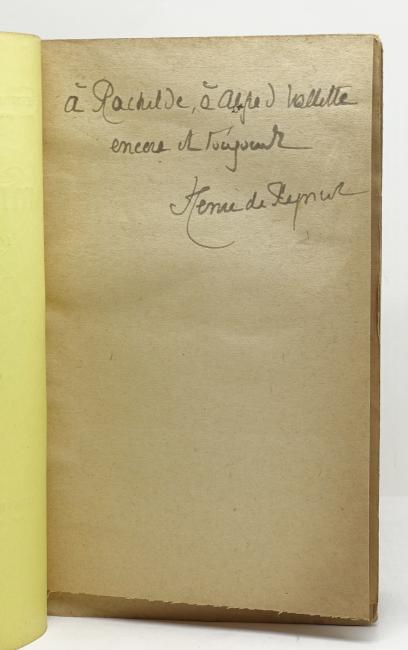 à Rachilde, à Alfred Vallette
encore et toujours
Henri de Régnier